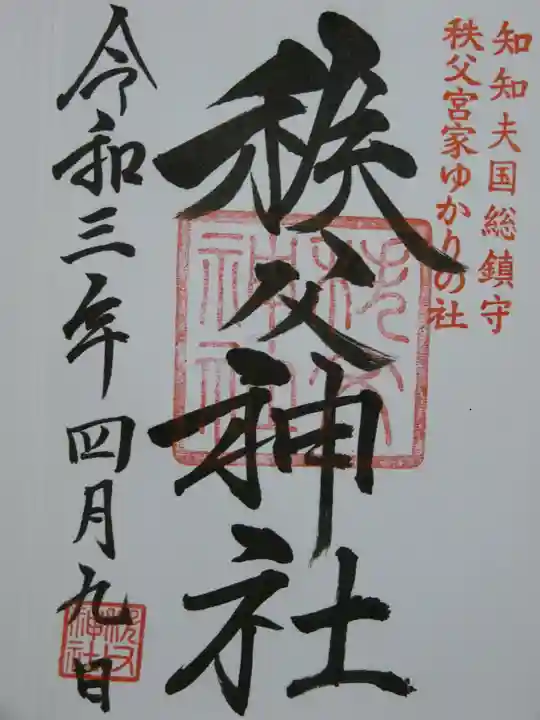 知知夫国総鎮守
秩父宮家ゆかりの社
秩父神社
秩父神社
令和三年四月九日
秩父神社